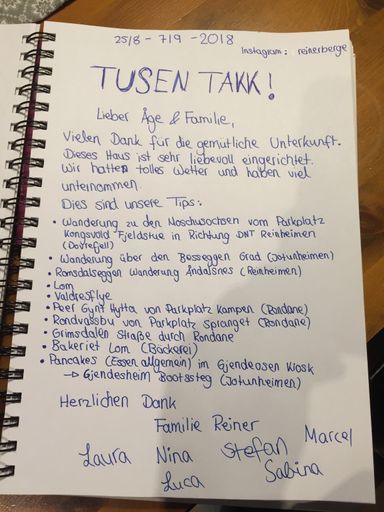 25/8 - 7/9 - 2018
Instagram: reinerberge
TUSEN TAKK!
Lieber Åge & Familie,
Vielen Dank für die gemütliche Unterkunft.
Dieses Haus ist sehr liebevoll eingerichtet.
Wir hatten tolles Wetter und haben viel
unternommen.
Dies sind unsere Tips:
• Wanderung zu den Moschusochsen vom Parkplatz
Kongsvold Fjeldstue in Richtung DNT Reinheimen
(Dovrefjell)
• Wanderung über den Besseggen Grad (Jotunheimen)
• Romsdalseggen Wanderung Andalsnes (Reinheimen)
• Lom
• Valdresflye
• Peer Gynt Hytta von Parkplatz Kampen (Rondane)
• Rondvassbu von Parkplatz Spranget (Rondane)
• Grimsdalen Straße durch Rondane
• Bakeriet Lom (Bäckerei)
• Pancakes (Essen allgemein) im Gjendeosen Kiosk
→ Gjendesheim Bootssteg (Jotunheimen)
Herzlichen Dank
Familie Reiner
Laura Nina Stefan Marcel
Luca Sabina